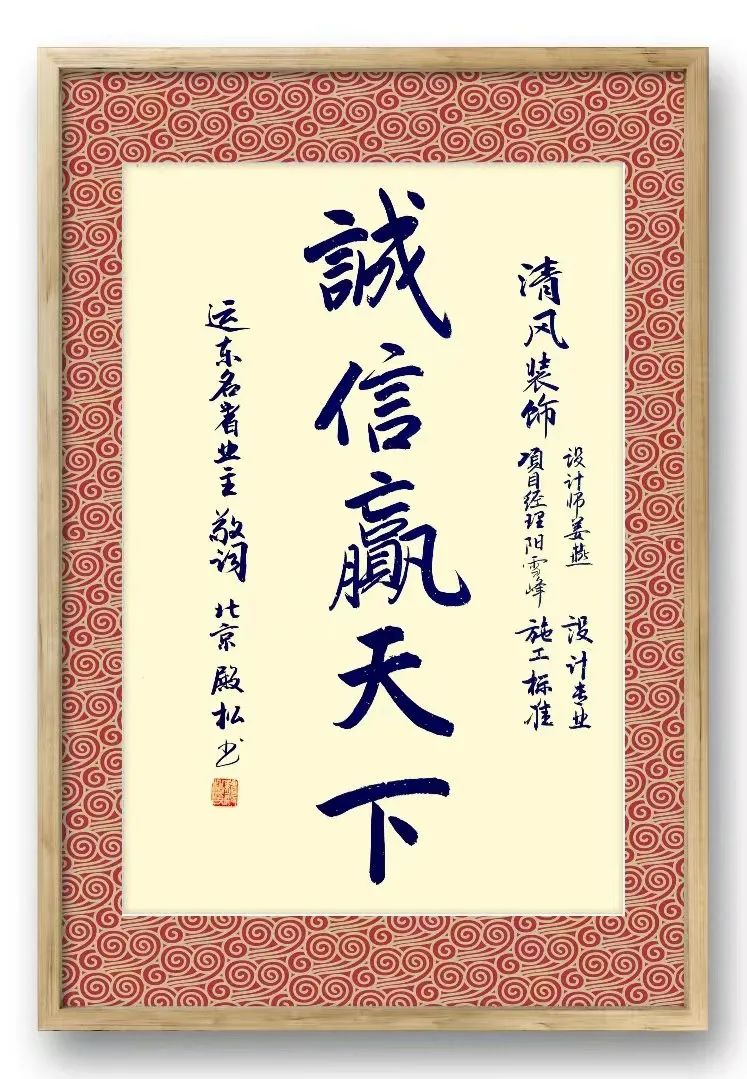 清风装饰
设计师姜燕 設计专业
項目经理阳雪峰 施工标准
誠信贏天下
运东名 业主 敬 北京 殿松书